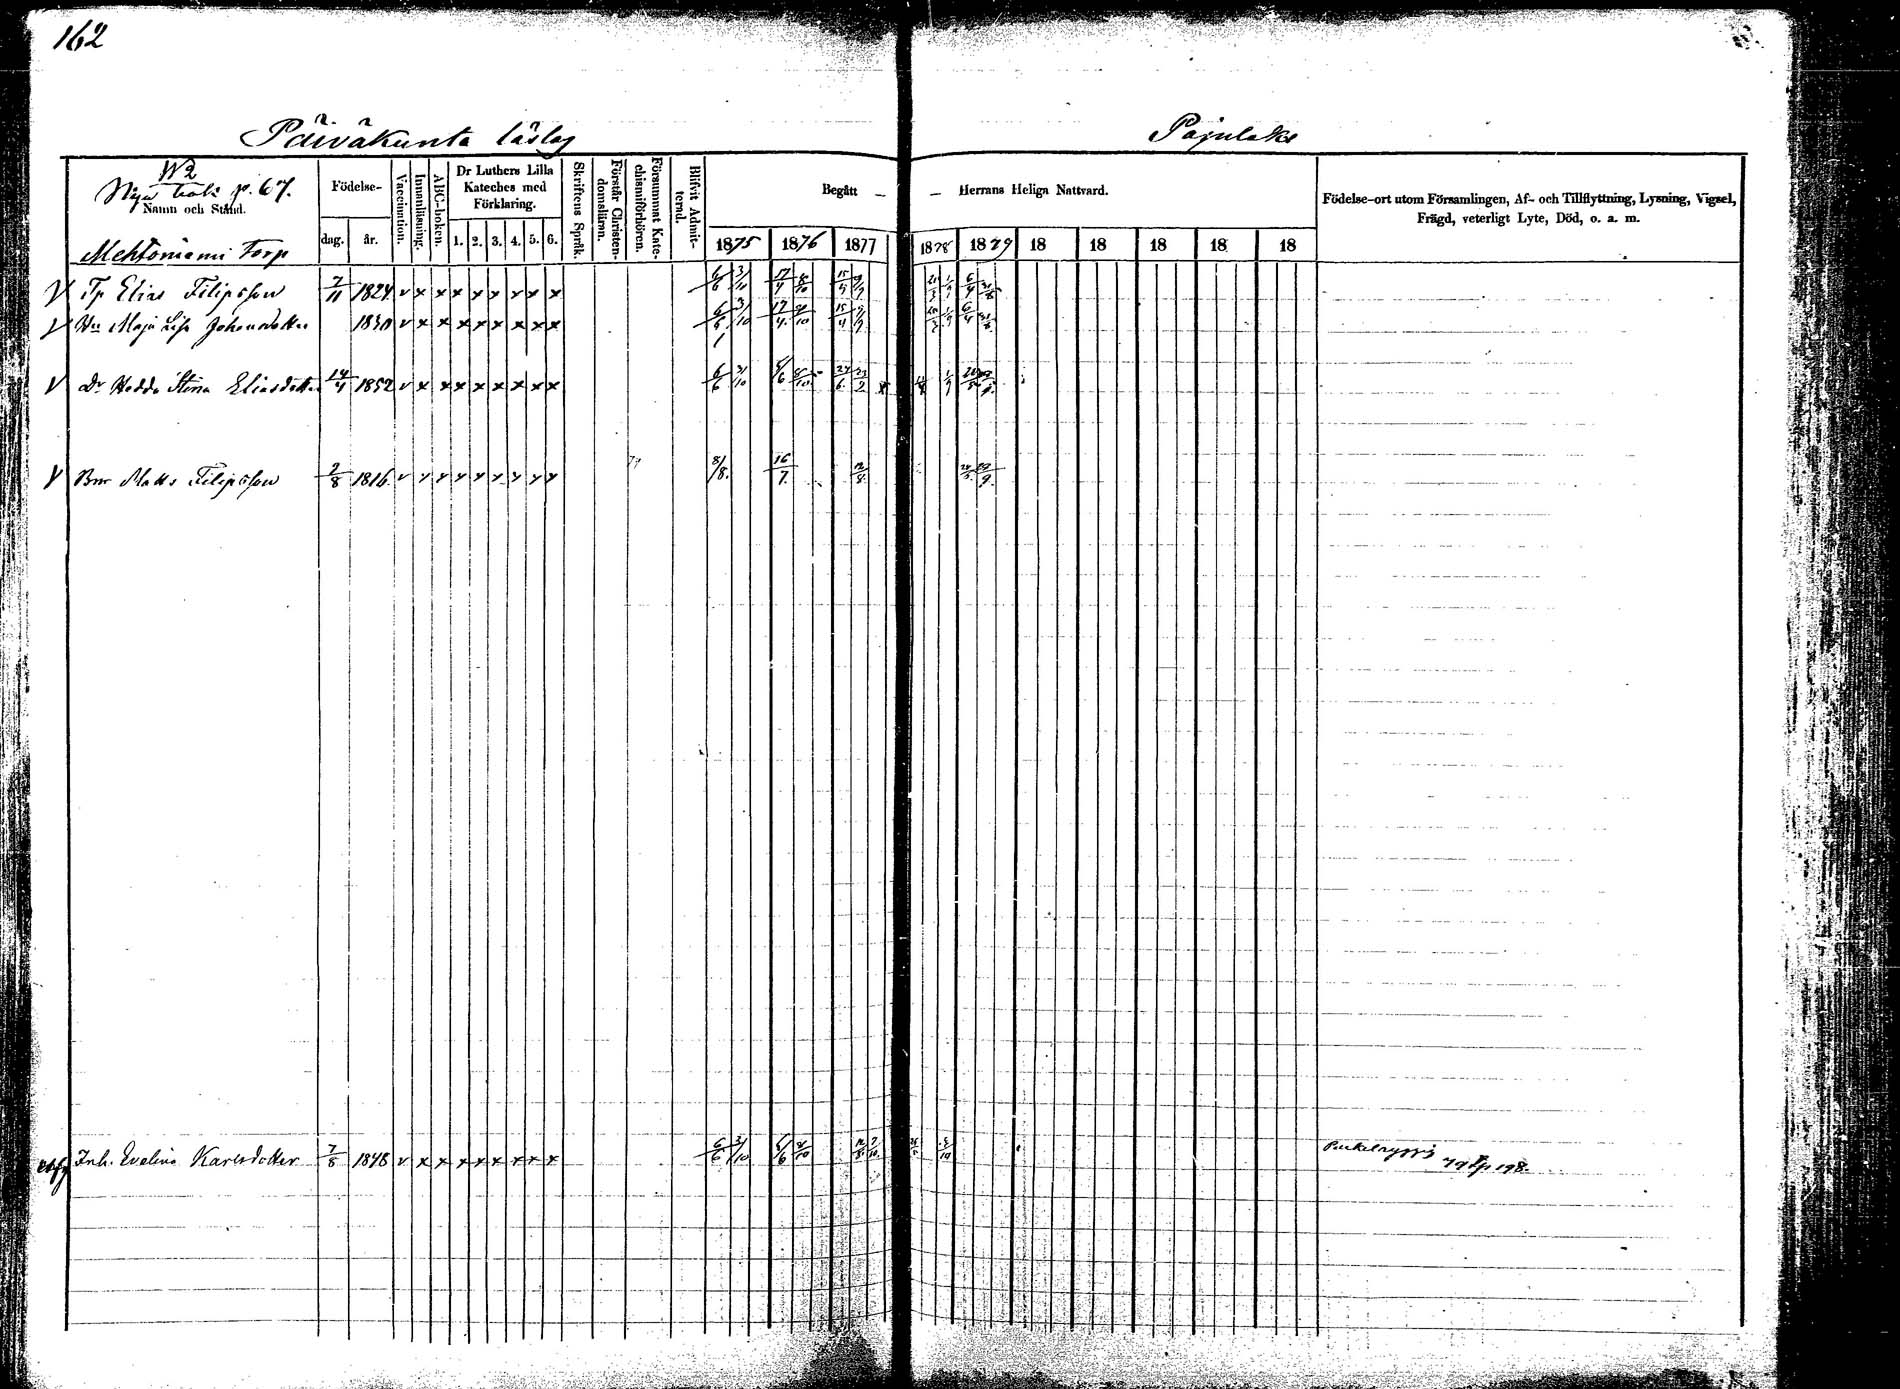 162
Päiväkunta läslag
Pajulaks
N2
Nya bok: p. 67.
Namn och Stånd.
Födelse-
dag.
år.
Vaccination.
Innanläsning.
ABC-boken.
Dr Luthers Lilla
Kateches med
Förklaring.
1. 2. 3. 4. 5. 6.
Skriftens Språk.
Förstår Christen-
domsläran.
Försummat Kate-
chismiförhören.
Blifvit Admit-
terad.
Begått –
– Herrans Heliga Nattvard.
1875 1876 1877 1878 1879 18 18 18 18 18
Födelse-ort utom Församlingen, Af- och Tillflyttning, Lysning, Vigsel,
Frägd, veterligt Lyte, Död, o. a. m.
Mehtöniemi Torp
V Tp Elias Filipsson 7/11 1824 v x x x x x x x x 6/6 3/10 17/4 8/10 15/4
V Hu Maja Lisa Johansdotter 1830 v x x x x x x x x 6/6 3/10 17/4 8/10 15/4
V Dr Hedda Stina Eliasdotter 14/4 1852 v x x x x x x x x 6/6 3/10
V Bror Matts Filipsson 2/8 1816 v 8/8 16/7 12/8
Inh. Evelina Karlsdotter 7/8 1848 v x x x x x x x x 6/6 3/10
Puckelryggig 79 Tp 198.